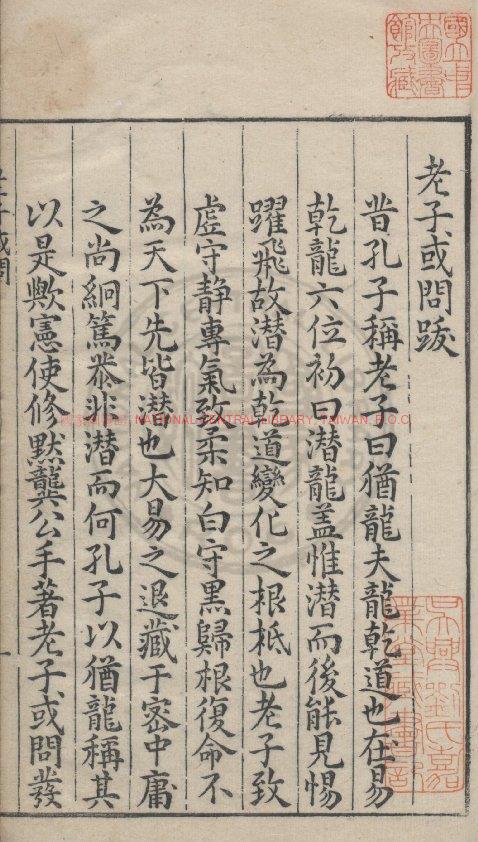 老子或問跋
昔孔子稱老子曰猶龍夫龍乾道也在易
乾龍六位初曰潛龍盖惟潛而後能見惕
躍飛故潛為乾道變化之根柢也老子致
虛守静專氣致柔知白守黒歸根復命不
為天下先皆潛也大易之退藏于密中庸
之尚絅篤恭非潛而何孔子以猶龍稱其
以是歟憲使修默龔公手著老子或問發
老子或問
一
國立中央圖書館收藏
吳興劉氏嘉業堂藏書記
國家圖書館 NATIONAL CENTRAL LIBRARY, TAIWAN, R.O.C.